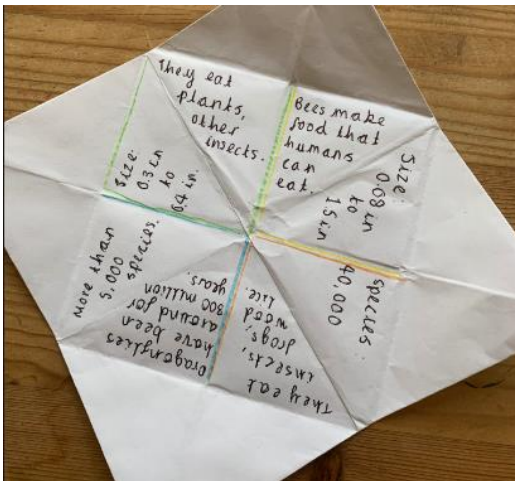 They eat
plants,
other
insects.
Bees make
food that
humans
can
eat.
Size:
0.08 in
to
1.5 in
Species:
40,000
They eat
insects,
frogs,
wood
lice.
Dragonflies
have been
around for
300 million
years.
More than
5,000
species.
Size:
0.3 in
to
6.4 in.